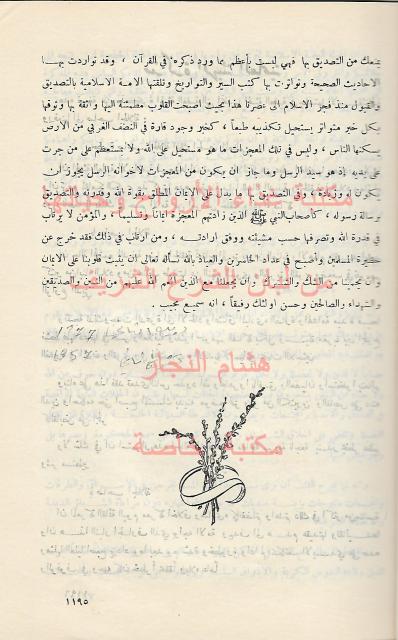 يمنعك من التصديق بها فهي ليست بأعظم مما ورد ذكره في القرآن ، وقد تواردت بها
الاحاديث الصحيحة وتواترت بها كتب السير والتواريخ وتلقتها الامة الاسلامية بالتصديق
والقبول منذ فجر الاسلام الى عصرنا هذا بحيث اصبحت القلوب مطمئنة اليها واثقة بها وثوقها
بكل خبر متواتر يستحيل تكذيبه طبعاً ، كخبر وجود قارة في النصف الغربي من الارض
يسكنها الناس ، وليس في تلك المعجزات ما هو مستحيل على الله ولا يستعظم على من جرت
على يديه إذ هو سيد الرسل وما جاز ان يكون من المعجزات لاخوانه الرسل يجوز أن
يكون له وزيادة ، وفي التصديق بها ما يدل على الإيمان المطلق بقوة الله وقدرته والتصديق
برسالة رسوله ، كأصحاب النبي ﷺ الذين زادتهم المعجزة ايماناً وتسليماً ، والمؤمن لا يرتاب
في قدرة الله وتصرفها حسب مشيئته ووفق ارادته ... ومن ارتاب في ذلك فقد خرج عن
حظيرة المسلمين وأصبح في عداد الخاسرين والعياذ بالله نسأله تعالى ان يثبت قلوبنا على الايمان
وان يجنبنا من الشك والشرك وان يجعلنا مع الذين انعم الله عليهم من النبيين والصديقين
والشهداء والصالحين وحسن اولئك رفيقاً ، انه سميع مجيب .
مكتبة غذاء الأرواح وحياتها
من لباب الشرع الشريف
هشام النجار
مكتبة خاصة
١١٩٥